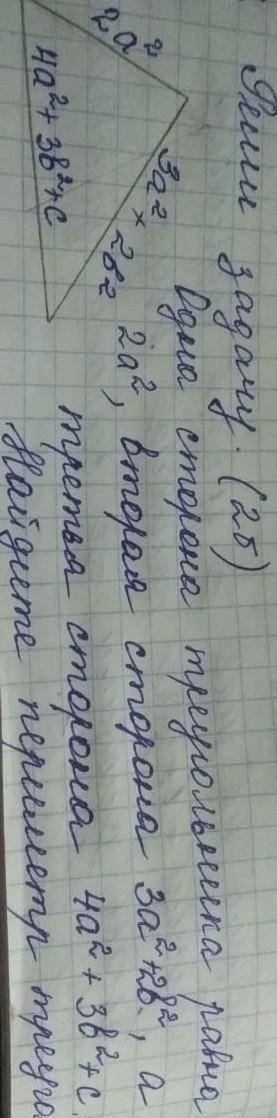 Реши задачу. (2б)
Одна сторона треугольника равна
2a², вторая сторона 3a²+2b², а
третья сторона 4a²+3b²+c
Найдите периметр треуго
2a²
3a² × 2b²
4a²+3b²+c